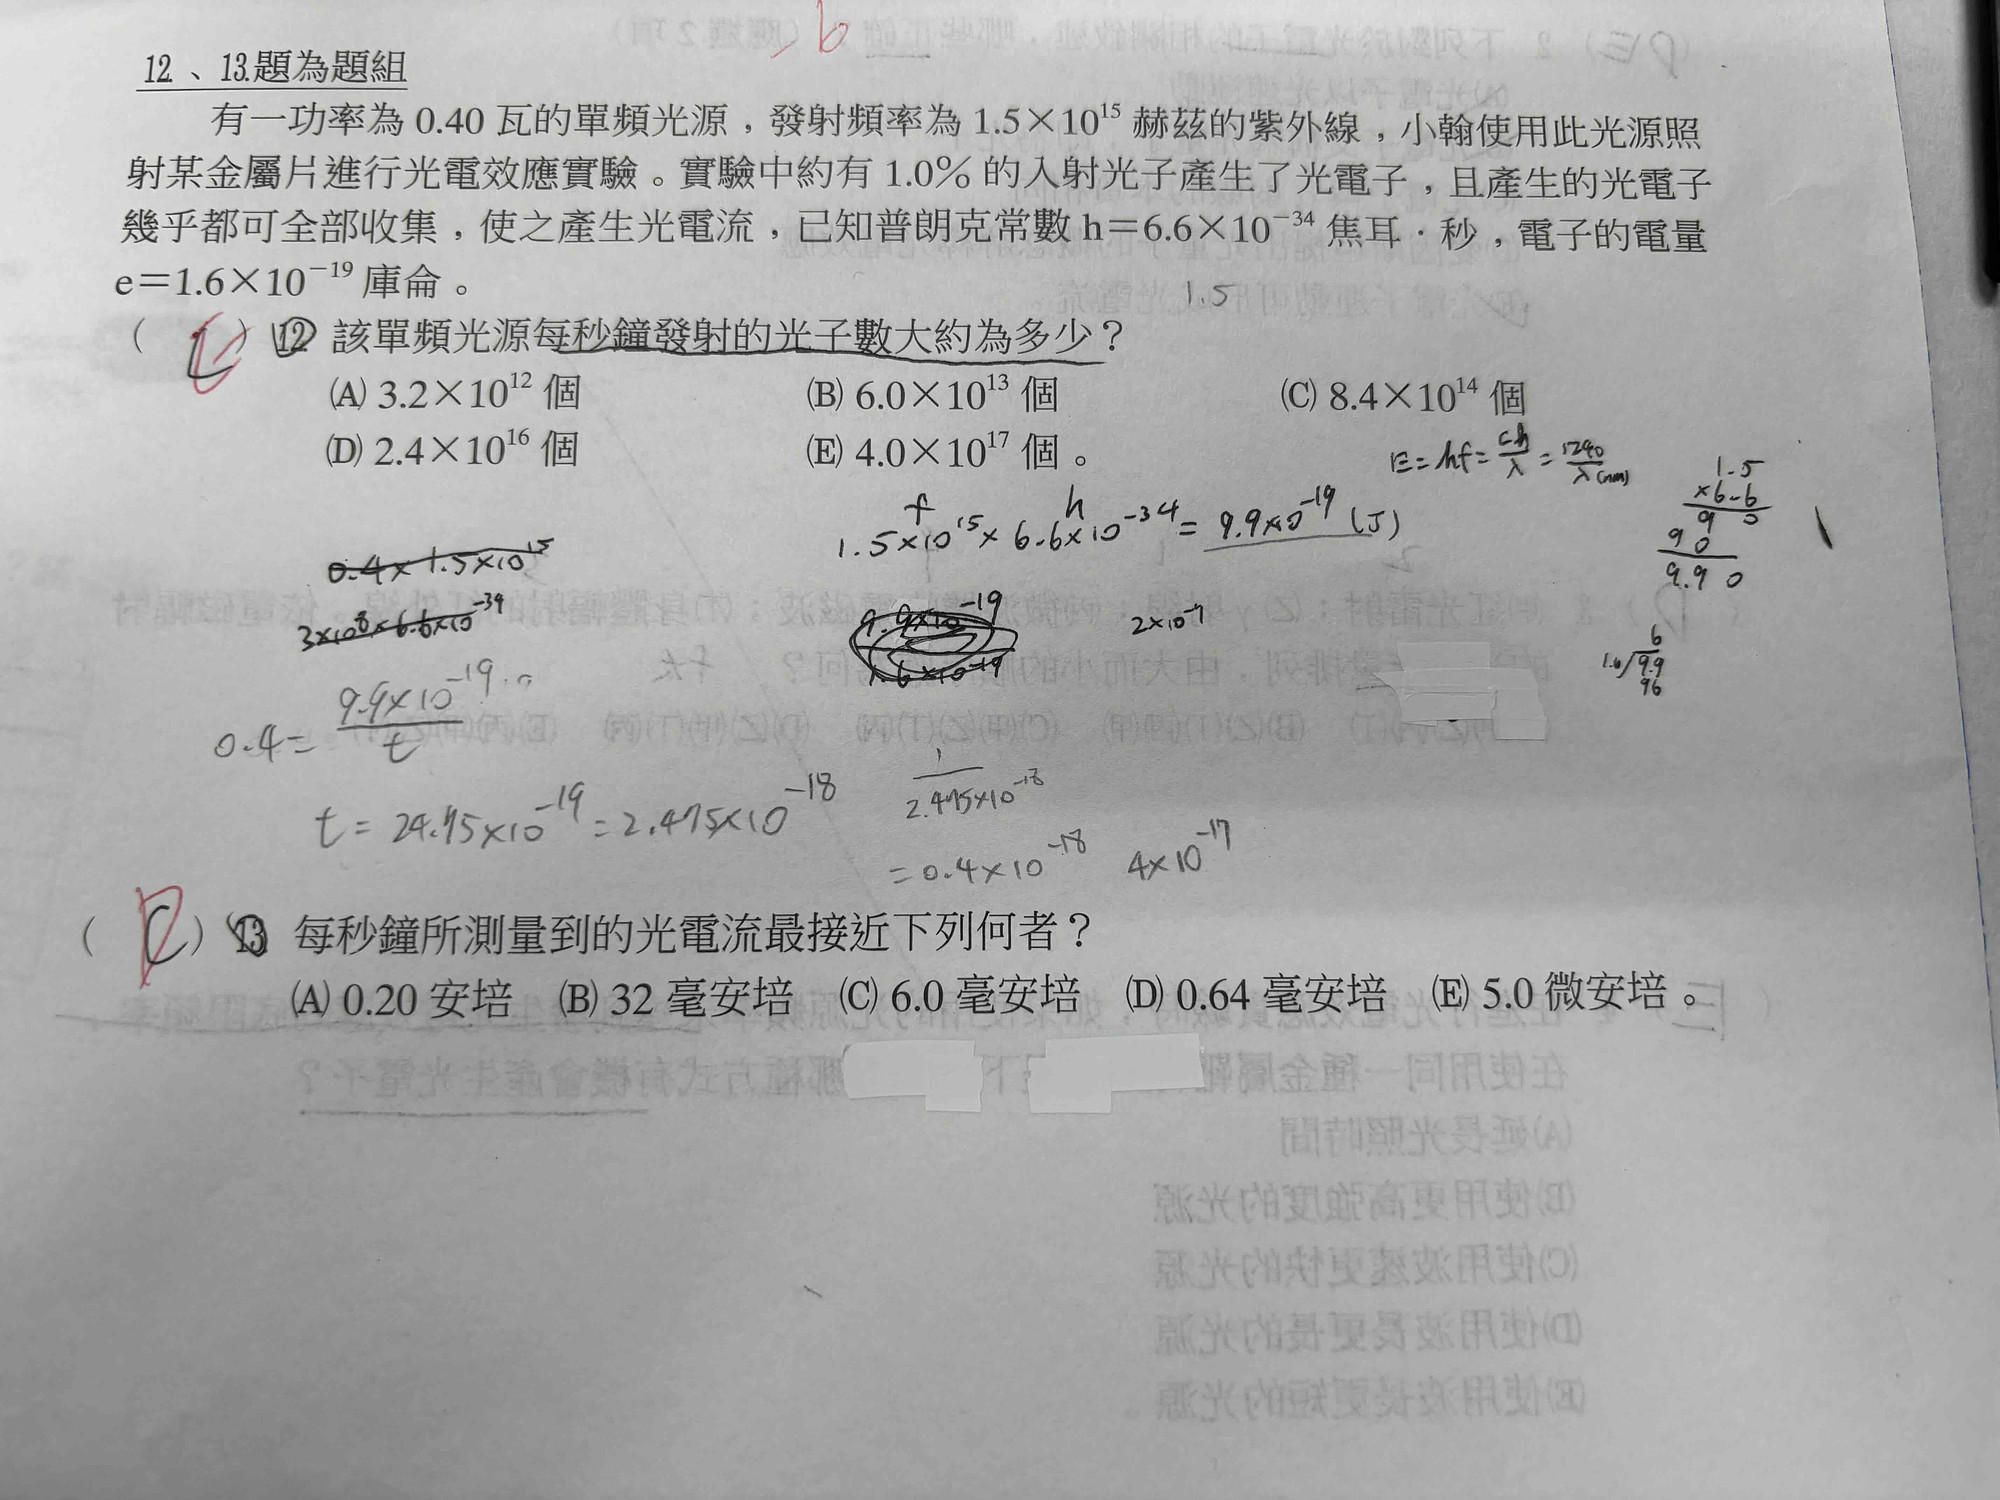 6
12、13.題為題組
有一功率為 0.40 瓦的單頻光源，發射頻率為 1.5×10¹⁵ 赫茲的紫外線，小翰使用此光源照
射某金屬片進行光電效應實驗。實驗中約有 1.0% 的入射光子產生了光電子，且產生的光電子
幾乎都可全部收集，使之產生光電流，已知普朗克常數 h＝6.6×10⁻³⁴ 焦耳．秒，電子的電量
e＝1.6×10⁻¹⁹ 庫侖。
1.5
( ) 12 該單頻光源每秒鐘發射的光子數大約為多少？
(A) 3.2×10¹² 個 (B) 6.0×10¹³ 個 (C) 8.4×10¹⁴ 個
(D) 2.4×10¹⁶ 個 (E) 4.0×10¹⁷ 個。
E=hf=ch/λ=1240/λ(nm)
f h
1.5×10¹⁵×6.6×10⁻³⁴=9.9×10⁻¹⁹(J)
1.5
×6.6
9 0
9 0
9.9 0
0.4×1.5×10¹⁵
3×10⁸×6.6×10⁻³⁴
9.9×10⁻¹⁹
1.6×10⁻¹⁹
2×10⁻⁷
6
1.6/9.9
96
0.4=9.9×10⁻¹⁹/t
t=24.75×10⁻¹⁹=2.475×10⁻¹⁸
1/2.475×10⁻¹⁸
=0.4×10⁻¹⁸ 4×10⁻¹⁷
( C ) 13 每秒鐘所測量到的光電流最接近下列何者？
(A) 0.20 安培 (B) 32 毫安培 (C) 6.0 毫安培 (D) 0.64 毫安培 (E) 5.0 微安培。